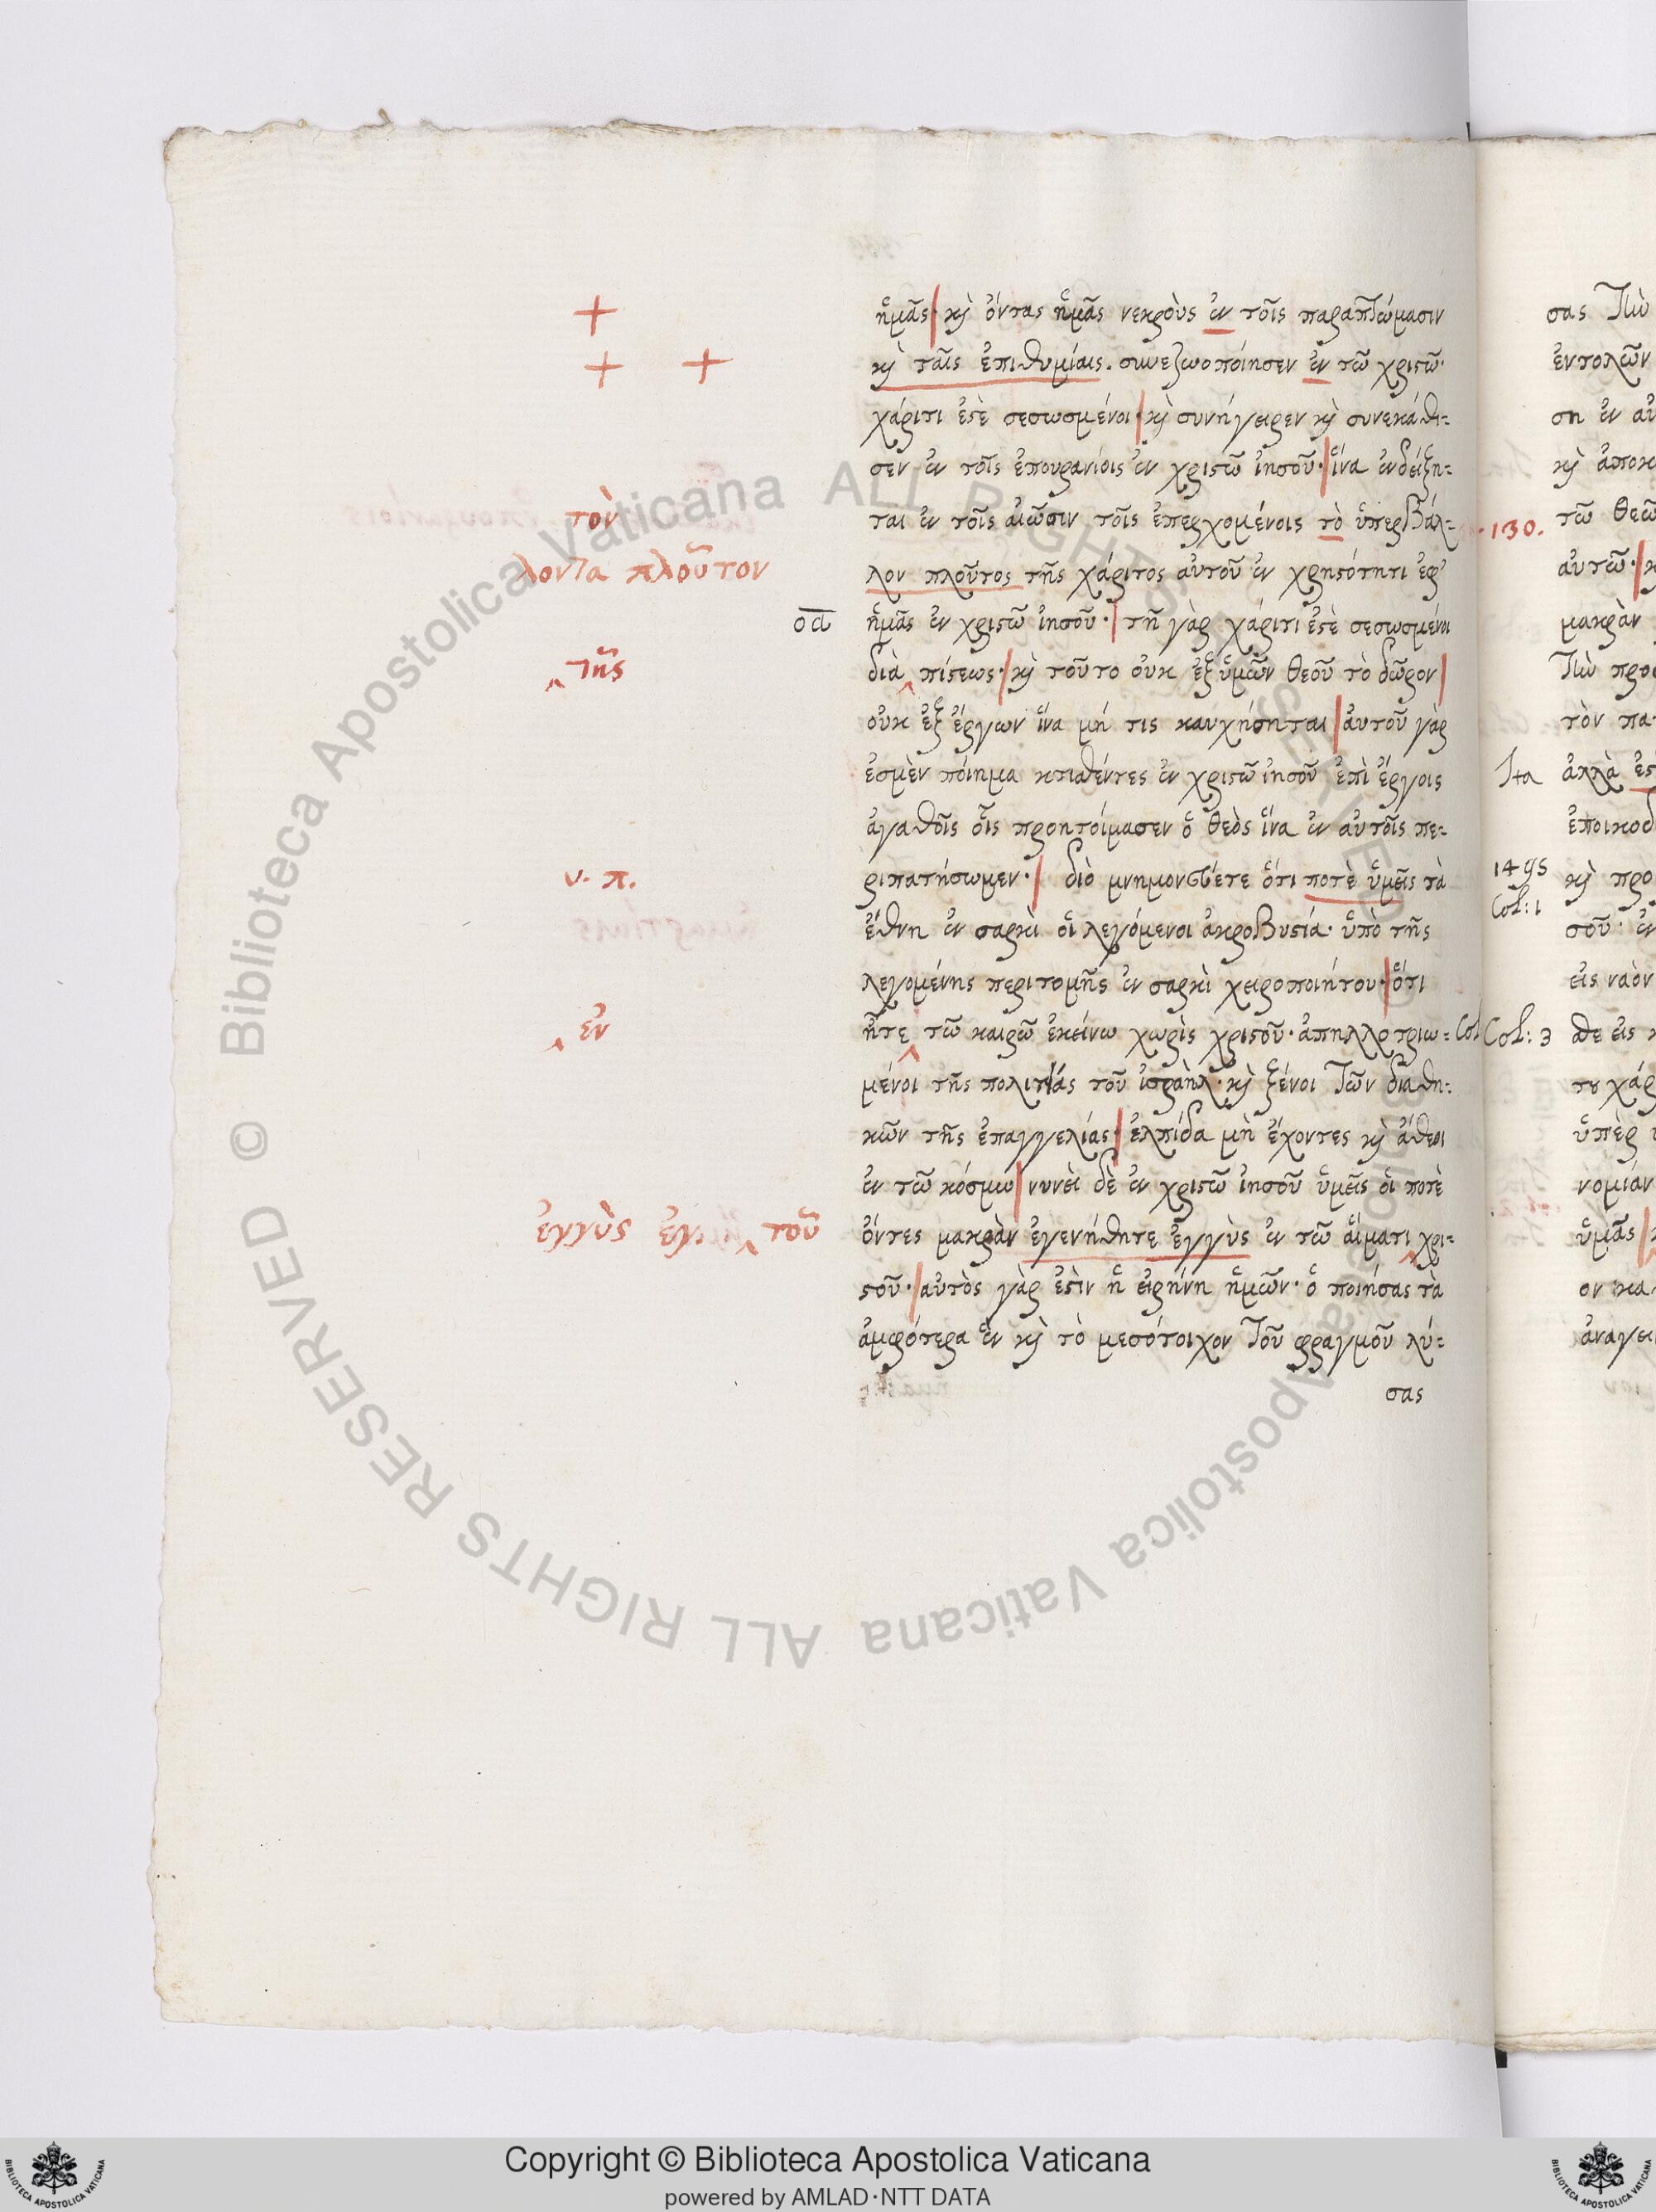 ἡμᾶς· κ̀ ὄντας ἡμᾶς νεκροὺς ἐν τοῖς παραπτώμασιν
κ̀ ταῖς ἐπιθυμίαις. συνεζωοποίησεν ἐν τῶ χριστῶ·
χάριτι ἐστὲ σεσωσμένοι· κ̀ συνήγειρεν κ̀ συνεκάθι=
σεν ἐν τοῖς ἐπουρανίοις ἐν χριστῶ ἰησοῦ· ἵνα ἐνδείξη=
τὸν
ται ἐν τοῖς αἰῶσιν τοῖς ἐπερχομένοις τὸ ὑπερβάλ=
λοντα πλοῦτον
λον πλοῦτος τῆς χάριτος αὐτοῦ ἐν χρηστότητι ἐφ'
οα
ἡμᾶς ἐν χριστῶ ἰησοῦ· τῆ γὰρ χάριτι ἐστὲ σεσωσμένοι
‸ τῆς
διὰ ‸ πίστεως· κ̀ τοῦτο οὐκ ἐξ ὑμῶν θεοῦ τὸ δῶρον
οὐκ ἐξ ἔργων ἵνα μή τις καυχήσηται αὐτοῦ γὰρ
ἐσμὲν ποίημα κτισθέντες ἐν χριστῶ ἰησοῦ ἐπὶ ἔργοις
ἀγαθοῖς οἷς προητοίμασεν ὁ θεὸς ἵνα ἐν αὐτοῖς πε=
υ. π.
ριπατήσωμεν· διὸ μνημονεύετε ὅτι ποτὲ ὑμεῖς τὰ
ἔθνη ἐν σαρκὶ οἱ λεγόμενοι ἀκροβυστία· ὑπὸ τῆς
λεγομένης περιτομῆς ἐν σαρκὶ χειροποιήτου· ὅτι
‸ ἐν
ἦτε ‸ τῶ καιρῶ ἐκείνω χωρὶς χριστοῦ· ἀπηλλοτριω=
μένοι τῆς πολιτείας τοῦ ἰσραὴλ· κ̀ ξένοι τῶν διαθη=
κῶν τῆς ἐπαγγελίας· ἐλπίδα μὴ ἔχοντες κ̀ ἄθεοι
ἐν τῶ κόσμω νυνεὶ δὲ ἐν χριστῶ ἰησοῦ ὑμεῖς οἵ ποτὲ
ἐγγὺς ἐγ. ‸ τοῦ
ὄντες μακρὰν ἐγενήθητε ἐγγὺς ἐν τῶ αἵματι ‸ χρι=
στοῦ· αὐτὸς γὰρ ἐστὶν ἡ εἰρήνη ἡμῶν· ὁ ποιήσας τὰ
ἀμφότερα ἓν κ̀ τὸ μεσότοιχον τοῦ φραγμοῦ λύ=
σας
130.
Ita
Col: 1
Col: 3
σας τὴν
ἐντολῶν
ση ἐν αὐ
κ̀ ἀποκ
τῶ θεῶ
αὐτῶ·
μακρὰν
τὴν προσ
τὸν πα
ἀλλὰ ἐσ
ἐποικοδ
κ̀ προ
σοῦ· ἐν
εἰς ναὸν
σθε εἰς κ
του χάρ
ὑπὲρ
νομίαν
ὑμᾶς
ον κα
ἀναγει
© Biblioteca Apostolica Vaticana ALL RIGHTS RESERVED
© Biblioteca Apostolica Vaticana ALL RIGHTS RESERVED
Copyright © Biblioteca Apostolica Vaticana
powered by AMLAD·NTT DATA
BIBLIOTECA APOSTOLICA VATICANA
BIBLIOTECA APOSTOLICA VATICANA